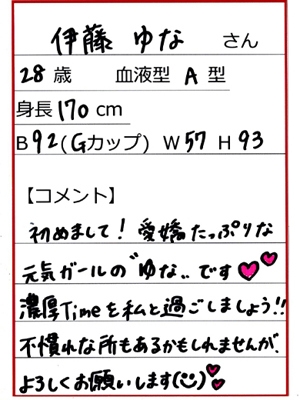 伊藤 ゆな さん
28歳 血液型 A 型
身長 170 cm
B 92(Gカップ) W 57 H 93
【コメント】
初めまして！愛嬌たっぷりな
元気ガールの"ゆな"です
濃厚Timeを私と過ごしましょう!!
不慣れな所もあるかもしれませんが、
よろしくお願いします(☺)